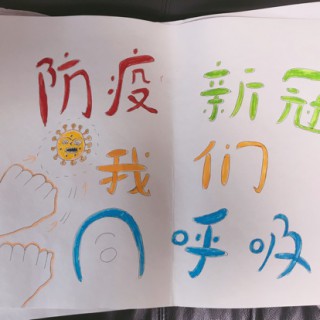 防疫新冠
我们
同呼吸